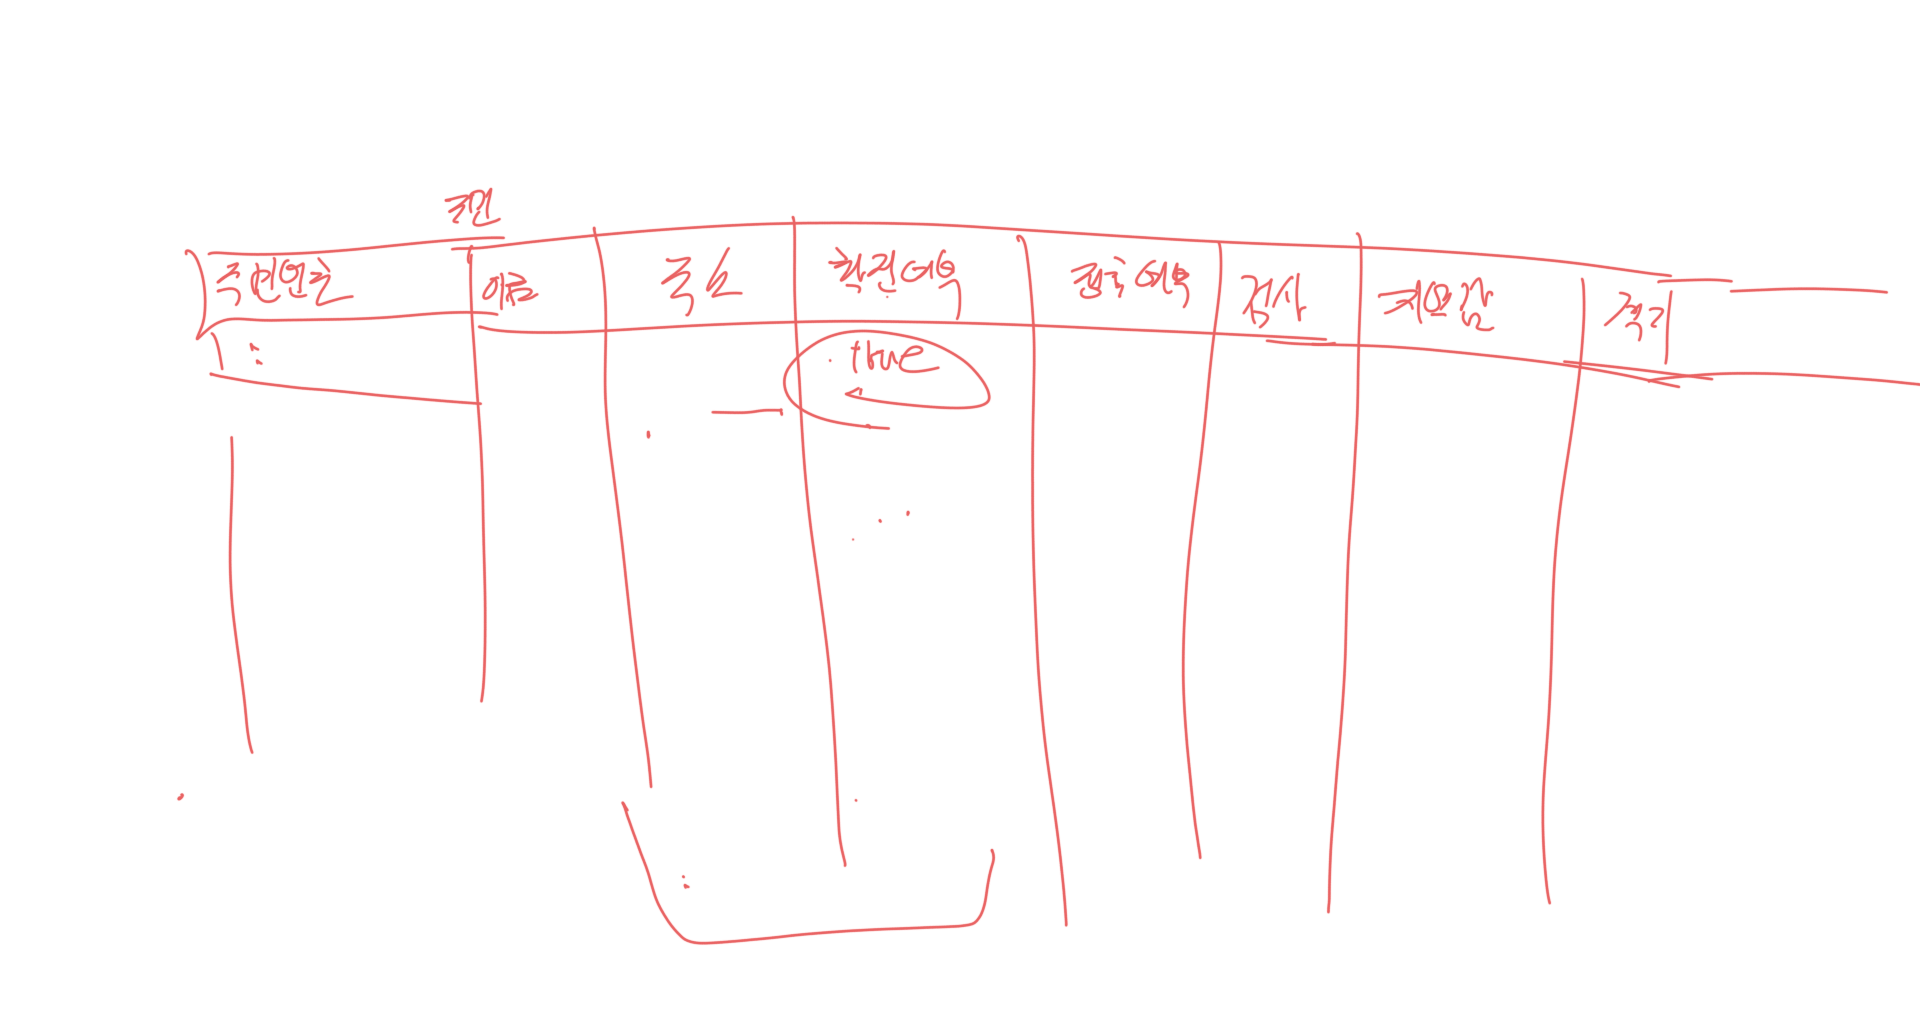 주민번호 이름 주소 확진여부 접촉여부 검사 처요일 격리
true